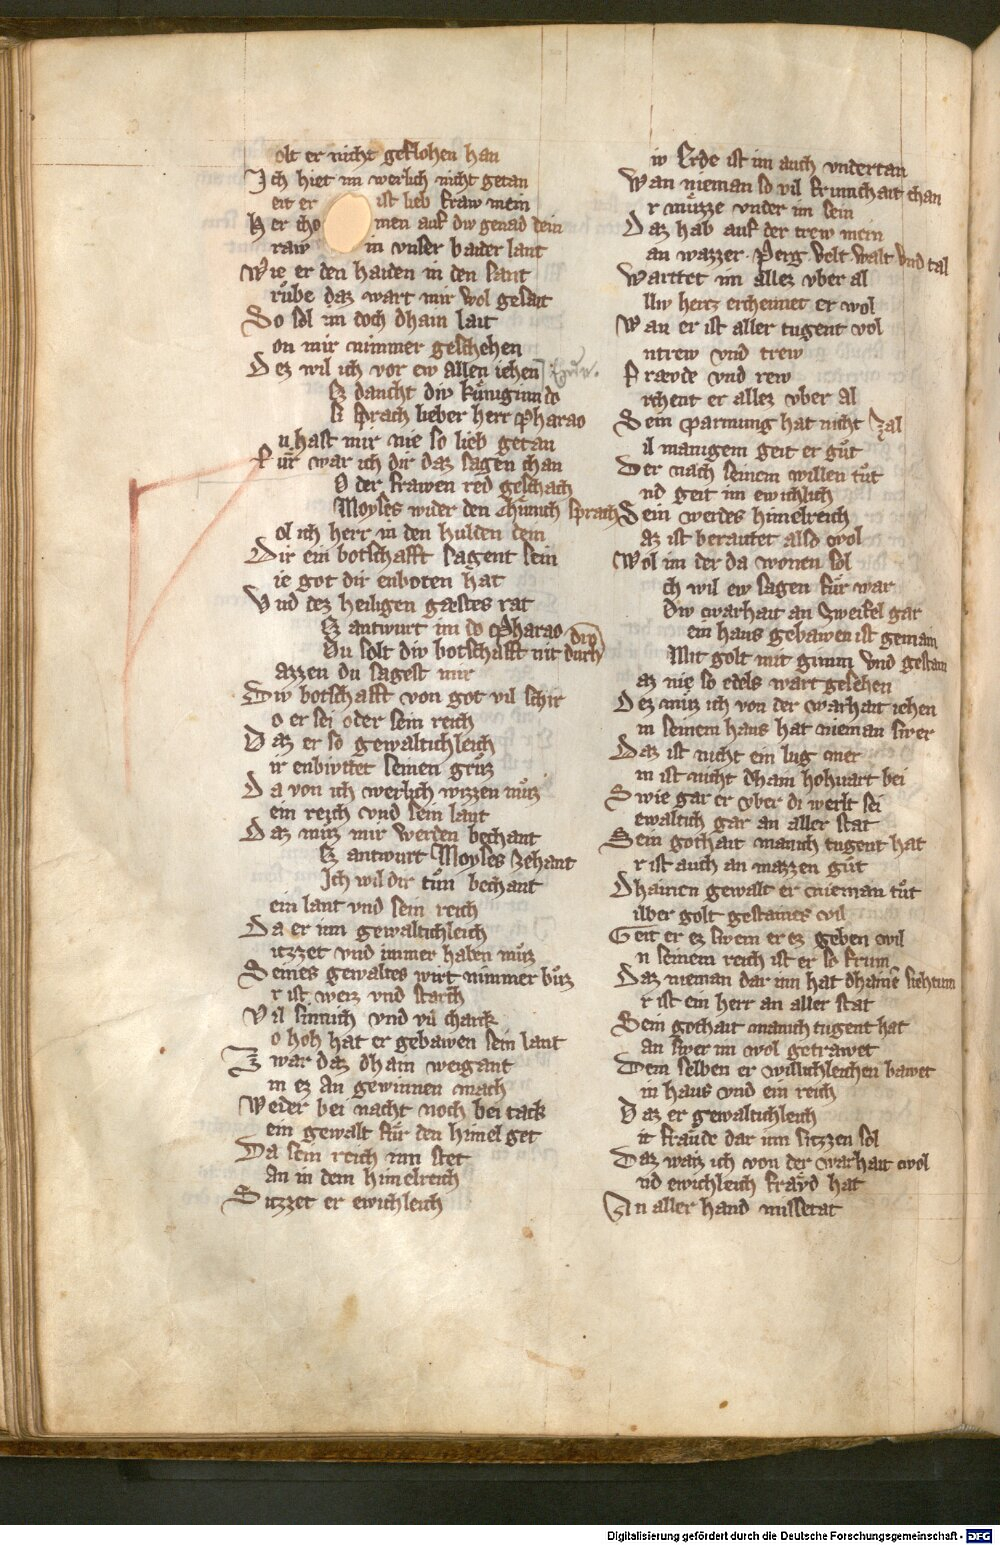 olt er nicht geflohen han
Ich hiet im werlich nicht getan
eit er ist lieb fraw mein
Her cho men auf diw genad dein
raw in vnser bayder lant
Wie er den haiden in den sant
růbe daz wart mir wol gesait
So sol im doch dhain lait
on mir nimmer geschehen
Dez wil ich vor ew allen iehen
Ez daucht diw künigin do
si sprach lieber herr Pharao
u hast mir nie so lieb getan
Für war ich dir daz sagen chan
O der frawen red geschach
Moyses wider den chünich sprach
ol ich herr in den hulden dein
Dir ein botschafft sagent sein
ie got dir enboten hat
Vnd dez heiligen gæstes rat
Ez antwurt im do Pharao
Du solt diw botschafft nit durch diw
azzen du sagest mir
Diw botschafft von got vil schir
o er sei oder sein reich
Daz er so gewaltichleich
ir enbiwttet seinen grůz
Da von ich werlich wizzen můz
ein reich vnd sein lant
Daz můz mir werden bechant
Ez antwurt Moyses zehant
Ich wil dir tůn bechant
ein lant vnd sein reich
Da er inn gewaltichleich
itzzet vnd immer haben můz
Seines gewaltes wirt nimmer bůz
r ist weiz vnd starch
Vil sinnich vnd vil charik
o hoh hat er gebawen sein lant
Zwar daz dhain weigant
in ez an gewinnen mach
Weder bei nacht noch bei tack
ein gewalt für den himel get
Da sein reich inn stet
an in dem himelreich
Sitzzet er ewichleich
iw Erde ist im auch vndertan
Wan nieman so vil frumchait chan
r müzze vnder im sein
Daz hab auf der trew mein
an wazzer Perg Velt walt vnd tal
Warttet im allez vber al
lliw hertz erchennet er wol
Wan er ist aller tugent vol
ntrew vnd trew
Fræwde vnd rew
rchent er allez vber al
Sein parmung hat nicht zal
il manigem geit er gůt
Der nach seinem willen tůt
nd geit im ewichlich
Sein werdes himelreich
az ist beraitet also wol
Wol im der da wonen sol
ch wil ew sagen für war
Diw warhait an zweifel gar
ein haus gebawen ist gemain
Mit golt mit gimm vnd gestain
az nie so edels wart gesehen
Dez můz ich von der warhait iehen
in seinem haus hat nieman swer
Daz ist nicht ein lug mer
m ist nicht dhain hohuart bei
Swie gar er vber di werlt sei
ewaltich gar an aller stat
Sein gothait manich tugent hat
r ist auch an mazzen gůt
Dhainen gewalt er nieman tůt
ilber golt gestaines vil
Geit er ez swem er ez geben wil
n seinem reich ist er so frum
Daz nieman dar inn hat dhaine siehtum
r ist ein herr an aller stat
Sein gothait manich tugent hat
an swer im wol getrawet
Dem selben er willichleichen bawet
in haus vnd ein reich
Daz er gewaltichleich
it fraude dar inn sitzzen sol
Daz waiz ich von der warhait wol
nd ewichleich frayd hat
An aller hand missetat
Digitalisierung gefördert durch die Deutsche Forschungsgemeinschaft - DFG